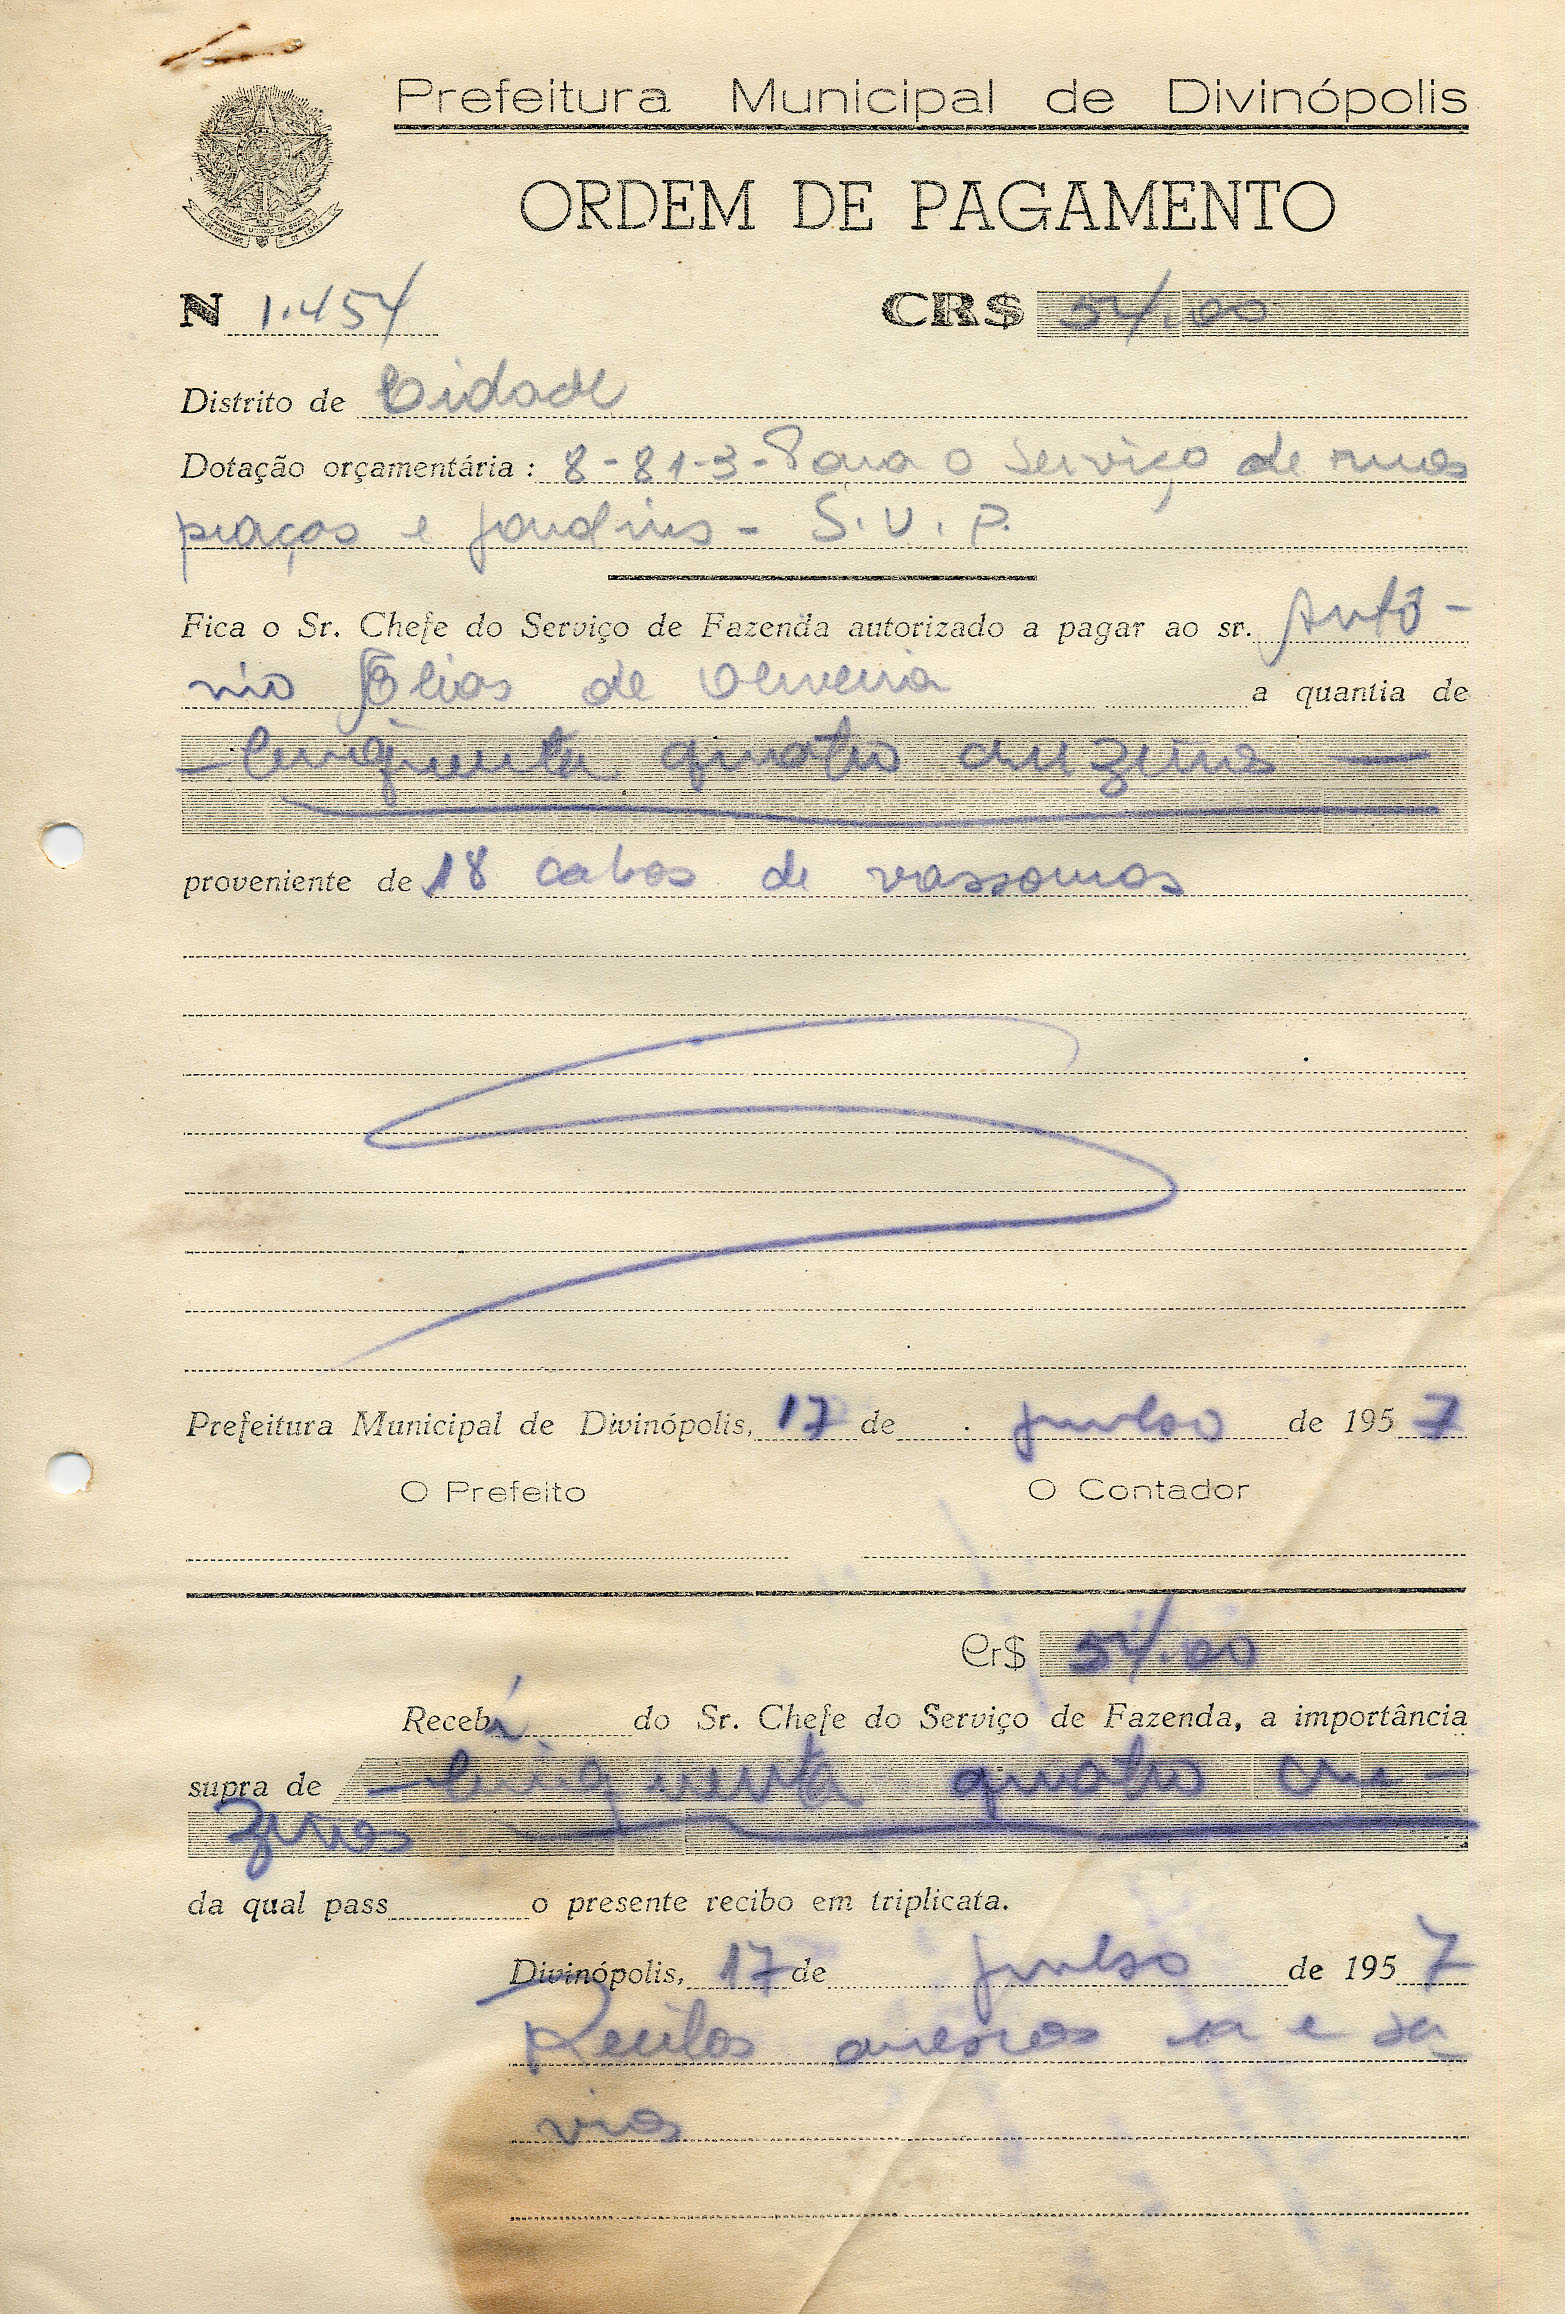 Prefeitura Municipal de Divinópolis
ORDEM DE PAGAMENTO
N 1.454 CR$ 54,00
Distrito de Cidade
Dotação orçamentária: 8-81-3-Para o serviço de ruas
praças e jardins - S.U.P.
Fica o Sr. Chefe do Serviço de Fazenda autorizado a pagar ao sr. Antô-
nio Elias de Oliveira a quantia de
— Cinquenta quatro cruzeiros —
proveniente de 18 cabos de vassouras
Prefeitura Municipal de Divinópolis, 17 de julho de 1957
O Prefeito O Contador
Cr$ 54,00
Recebí do Sr. Chefe do Serviço de Fazenda, a importância
supra de — Cinquenta quatro cru-
zeiros
da qual pass o presente recibo em triplicata.
Divinópolis, 17 de julho de 1957
Recibos anexos
vias